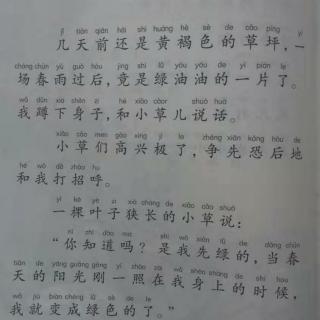 几天前还是黄褐色的草坪，一
场春雨过后，竟是绿油油的一片了。
我蹲下身子，和小草儿说话。
小草们高兴极了，争先恐后地
和我打招呼。
一棵叶子狭长的小草说：
“你知道吗？是我先绿的，当春
天的阳光刚一照在我身上的时候，
我就变成绿色的了。”